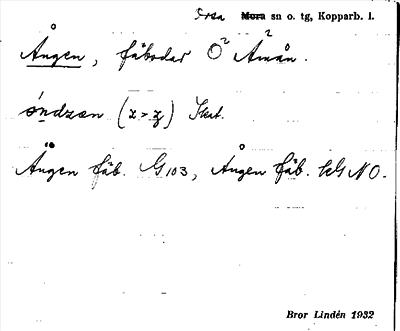 Orsa Mora sn o. tg, Kopparb. l.
Ången, fäbodar O² Amån².
(z > z) Skat.
Ången fäb. G103, Ången fäb. NO.
Bror Lindén 1932